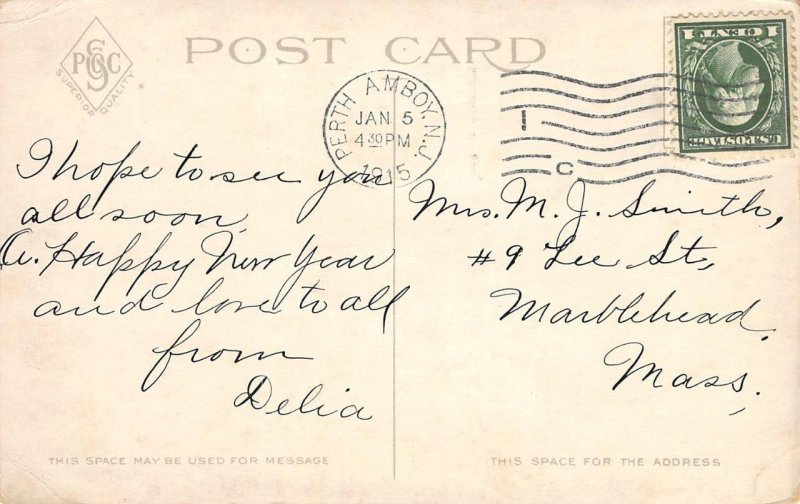 PSGC
SUPERIOR QUALITY
POST CARD
PERTH AMBOY, N.J.
JAN 5
4 30 PM
1915
1
C
1 ONE CENT 1
U.S. POSTAGE
I hope to see you
all soon.
A. Happy New Year
and love to all
from
Delia
Mrs. M. J. Smith,
#9 Lee St,
Marblehead.
Mass.
THIS SPACE MAY BE USED FOR MESSAGE
THIS SPACE FOR THE ADDRESS